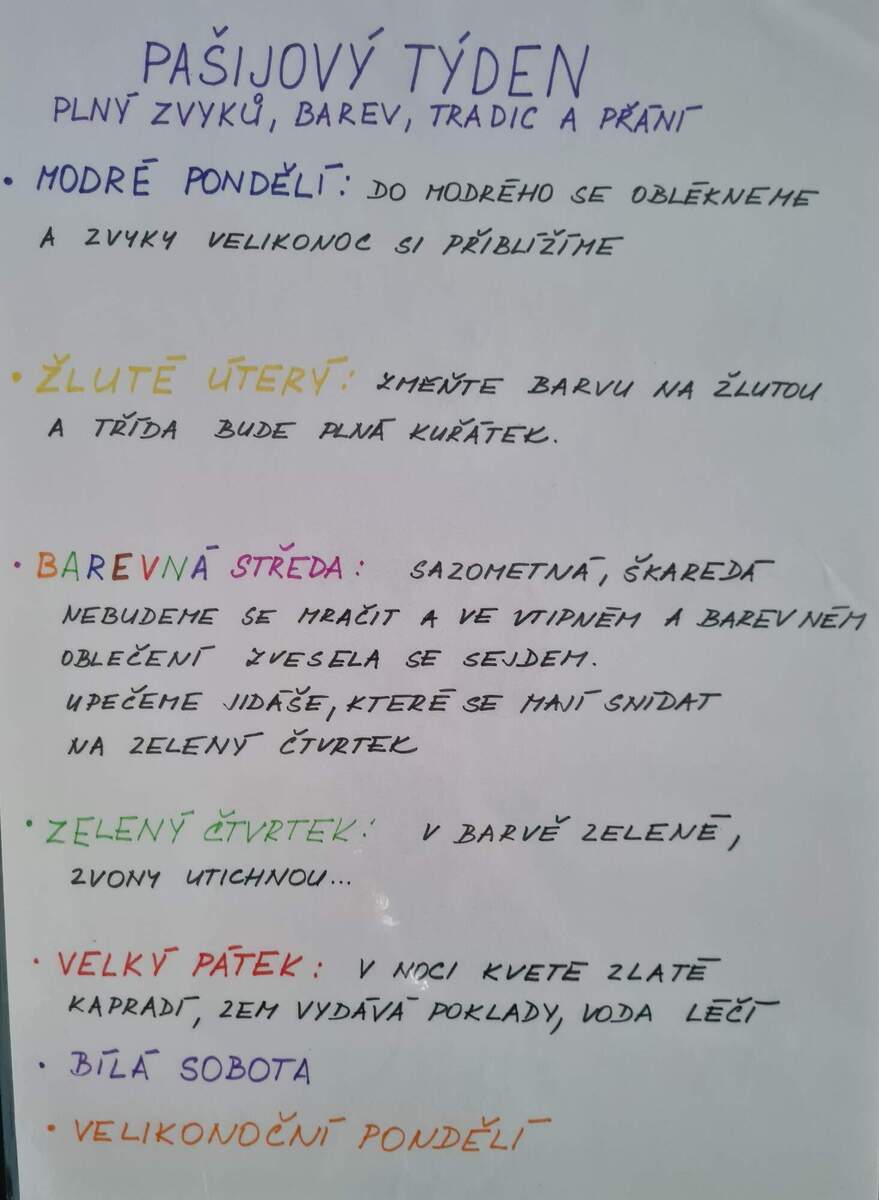 PAŠIJOVÝ TÝDEN
PLNÝ ZVYKŮ, BAREV, TRADIC A PŘÁNÍ
• MODRÉ PONDĚLÍ: DO MODRÉHO SE OBLÉKNEME
A ZVYKY VELIKONOC SI PŘIBLÍŽÍME
• ŽLUTÉ ÚTERÝ: ZMEŇTE BARVU NA ŽLUTOU
A TŘÍDA BUDE PLNÁ KUŘÁTEK.
• BAREVNÁ STŘEDA: SAZOMETNÁ, ŠKAREDÁ
NEBUDEME SE MRAČIT A VE VTIPNÉM A BAREVNÉM
OBLEČENÍ ZVESELA SE SEJDEM.
UPEČEME JIDÁŠE, KTERÉ SE MAJÍ SNÍDAT
NA ZELENÝ ČTVRTEK
• ZELENÝ ČTVRTEK: V BARVĚ ZELENÉ,
ZVONY UTICHNOU...
• VELKÝ PÁTEK: V NOCI KVETE ZLATÉ
KAPRADÍ, ZEM VYDÁVÁ POKLADY, VODA LÉČÍ
• BÍLÁ SOBOTA
• VELIKONOČNÍ PONDĚLÍ